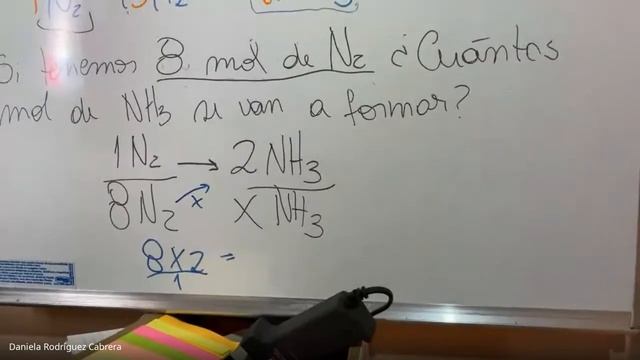 1 N₂ (3)H₂
Si tenemos 8 mol de N₂ ¿Cuántas
mol de NH₃ se van a formar?
1N₂ → 2NH₃
8N₂ x X NH₃
8x2 =
1
Daniela Rodríguez Cabrera